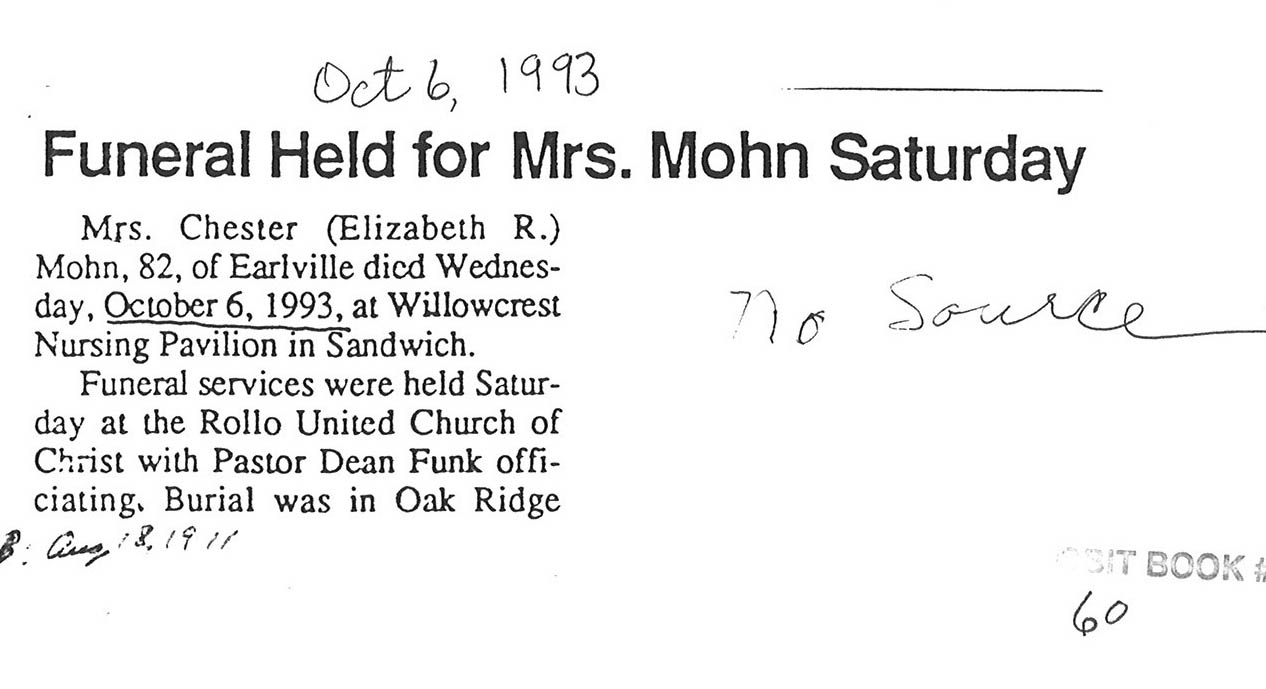 Oct 6, 1993
Funeral Held for Mrs. Mohn Saturday
Mrs. Chester (Elizabeth R.)
Mohn, 82, of Earlville died Wednes-
day, October 6, 1993, at Willowcrest
Nursing Pavilion in Sandwich.
Funeral services were held Satur-
day at the Rollo United Church of
Christ with Pastor Dean Funk offi-
ciating. Burial was in Oak Ridge
B: Aug 18, 1911
No Source
OBIT BOOK #
60